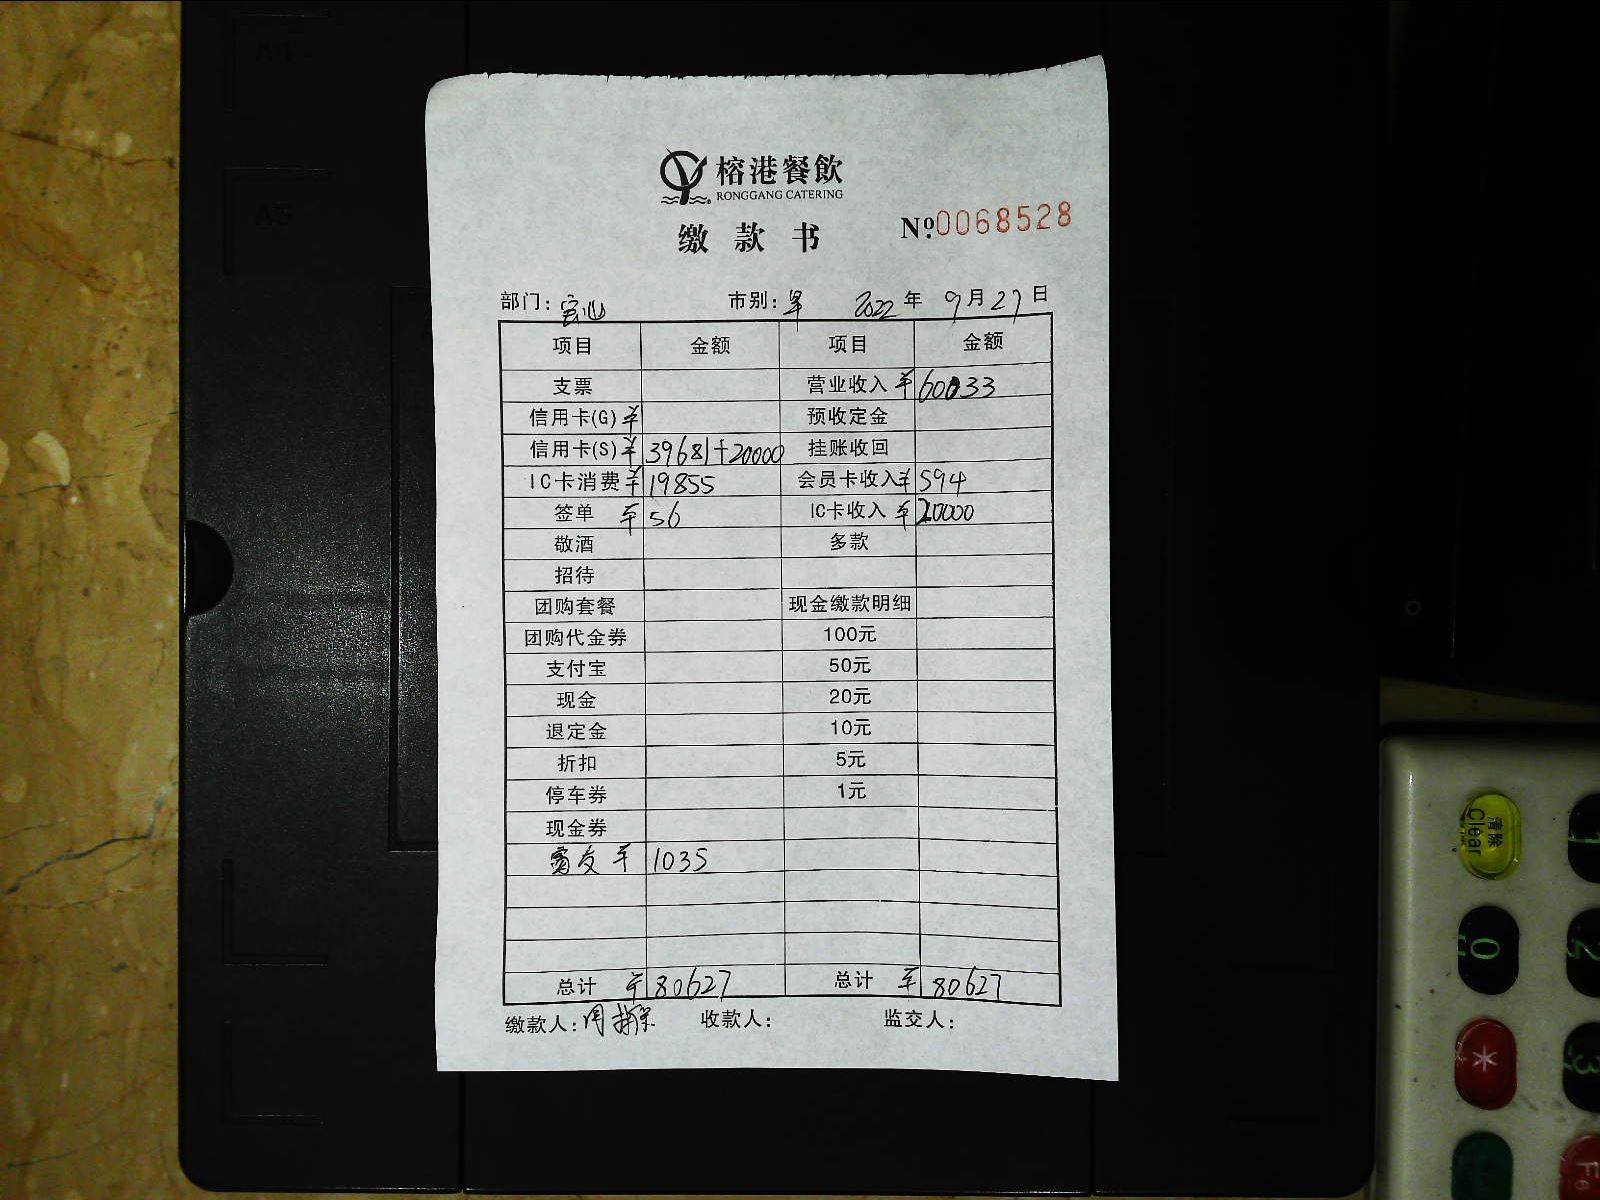 榕港餐飲
RONGGANG CATERING
缴款书
№.0068528
部门: 宝山 市别: 早 2022年 9月27日
项目 金额 项目 金额
支票 营业收入 ¥60033
信用卡(G) ¥ 预收定金
信用卡(S) ¥39681+20000 挂账收回
IC卡消费 ¥19855 会员卡收入 ¥594
签单 ¥56 IC卡收入 ¥20000
敬酒 多款
招待
团购套餐 现金缴款明细
团购代金券 100元
支付宝 50元
现金 20元
退定金 10元
折扣 5元
停车券 1元
现金券
¥1035
总计 ¥80627 总计 ¥80627
缴款人: 周 收款人: 监交人:
A4
A5
清除
Clear
0
2
3
*